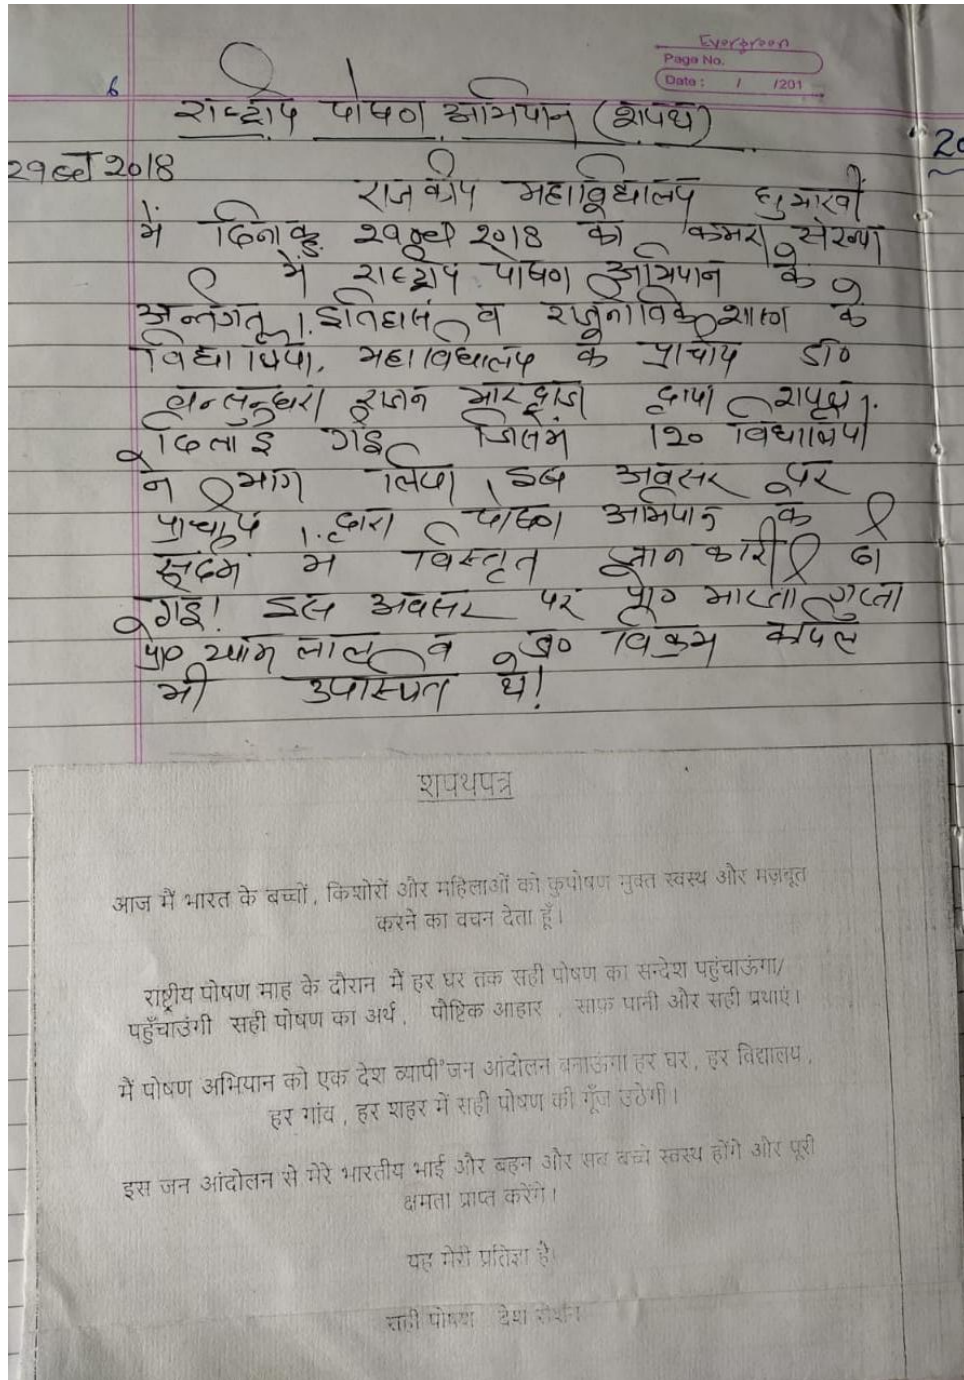 Evergreen
Page No.
Date : / /201
6
राष्ट्रीय पोषण अभियान (शपथ)
20
2018
राजकीय महाविद्यालय घुमारवीं
में दिनांक 2018 को कमरा संख्या
में राष्ट्रीय पोषण अभियान के
अन्तर्गत इतिहास व राजनीतिक शास्त्र के
महाविद्यालय के प्राचार्य डॉ०
भारद्वाज द्वारा शपथ
दिलाई गई जिसमें 120 विद्यार्थियों
ने भाग लिया। इस अवसर पर
प्राचार्य द्वारा पोषण अभियान के
संदर्भ में विस्तृत जानकारी दी
गई। इस अवसर पर प्रो० गुप्ता
प्रो० लाल व प्रो० विक्रम कपिल
भी उपस्थित थे!
शपथपत्र
आज मैं भारत के बच्चों, किशोरों और महिलाओं को कुपोषण मुक्त स्वस्थ और मज़बूत
करने का वचन देता हूँ।
राष्ट्रीय पोषण माह के दौरान मैं हर घर तक सही पोषण का सन्देश पहुंचाऊंगा/
पहुँचाउंगी सही पोषण का अर्थ, पौष्टिक आहार , साफ़ पानी और सही प्रथाएं।
मैं पोषण अभियान को एक देश व्यापी जन आंदोलन बनाऊंगा हर घर, हर विद्यालय,
हर गांव, हर शहर में सही पोषण की गूँज उठेगी।
इस जन आंदोलन से मेरे भारतीय भाई और बहन और सब बच्चे स्वस्थ होंगे ओर पूरी
क्षमता प्राप्त करेंगे।
यह मेरी प्रतिज्ञा है।
सही पोषण देश रोशन